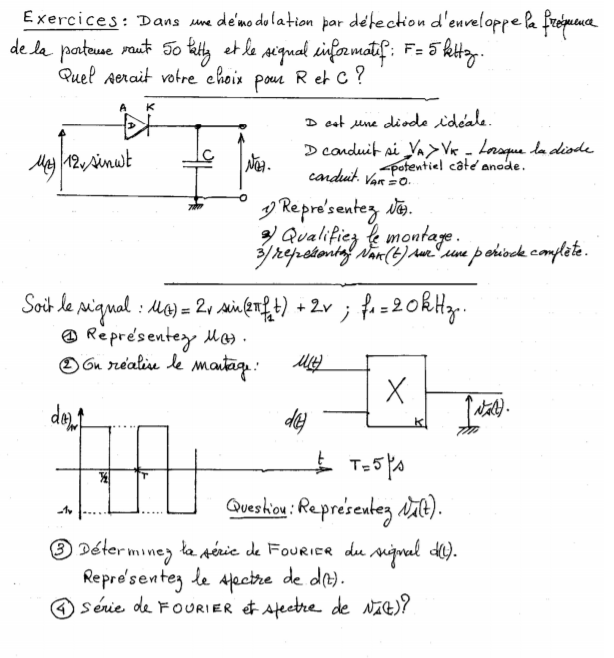 Exercices : Dans une démodulation par détection d'enveloppe la fréquence
de la porteuse vaut 50 kHz et le signal informatif : F = 5 kHz.
Quel serait votre choix pour R et C ?
A K
D
u(t) 12v sin ωt
C
v(t).
D est une diode idéale.
D conduit si VA > VK - Lorsque la diode
potentiel côté anode.
conduit. VAK = 0.
1) Représentez v(t).
2) Qualifiez le montage.
3) représentez vAK(t) sur une période complète.
Soit le signal : u(t) = 2v sin(2πf1t) + 2v ; f1 = 20 kHz.
① Représentez u(t).
② On réalise le montage :
u(t)
d(t)
X
K
vs(t).
d(t)
1v
T/2
T
t
-1v
T = 5 µs
Question : Représentez vs(t).
③ Déterminez la série de FOURIER du signal d(t).
Représentez le spectre de d(t).
④ Série de FOURIER et spectre de vs(t) ?